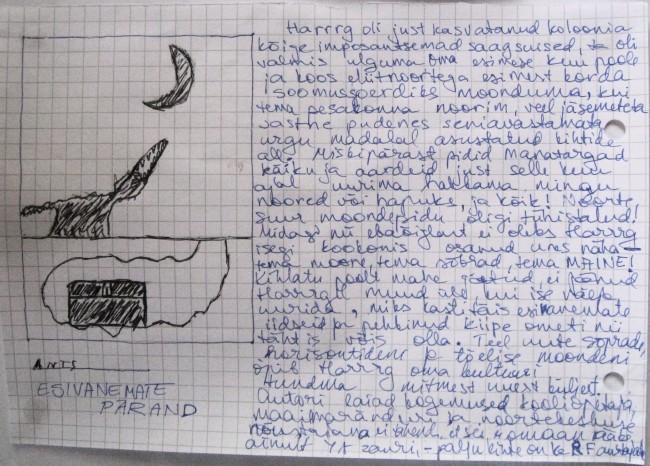 Harrrg oli just kasvatanud koloonia
kõige imposantsemad saagsuised, ta oli
valmis ulguma oma esimese kuu poole
ja koos eliitnoortega esimest korda
soomussoerdiks moonduma, kui
tema pesakonna noorim, veel jäsemeteta
vastne pudenes seniavastamata
urgu madalal asustatud kihtide
all. Miskipärast pidid Manatargad
käiku ja aardeid just selle kuu
ajal uurima hakkama mingu
noored või hapuks, ja kõik! Noorte
suur moondepidu oligi tühistatud!
Midagi nii ebaõiglast ei oleks Harrrg
isegi kookonis osanud unes näha –
tema moone, tema sõbrad, tema MAINE!
Kihlatu poolt mahe jäetud ei jäänud
Harrrgil muud üle, kui ise välja
uurida, miks lastitäis esivanemate
iidseid ja pehkinud kiipe ometi nii
tähtis võis olla. Teel uute sõprade,
horisontideni ja tõelise moondeni
õpib Harrrg oma kultuuri
tundma mitmest uuest küljest.
Autori laiad kogemused kooliõpetaja,
maailmaränduri ja noortekeskuse
ainus YA žanri, – palju kiite on ka
ANTS
ESIVANEMATE
PÄRAND